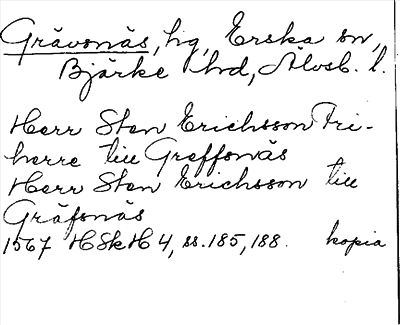 Grävsnäs, hg, Erska sn,
Bjärke hd, Älvsb. l.
Herr Sten Erichsson Fri-
herre till Greffsnäs
Herr Sten Erichsson till
Gräfsnäs
1567 HSkH 4, ss. 185, 188. kopia